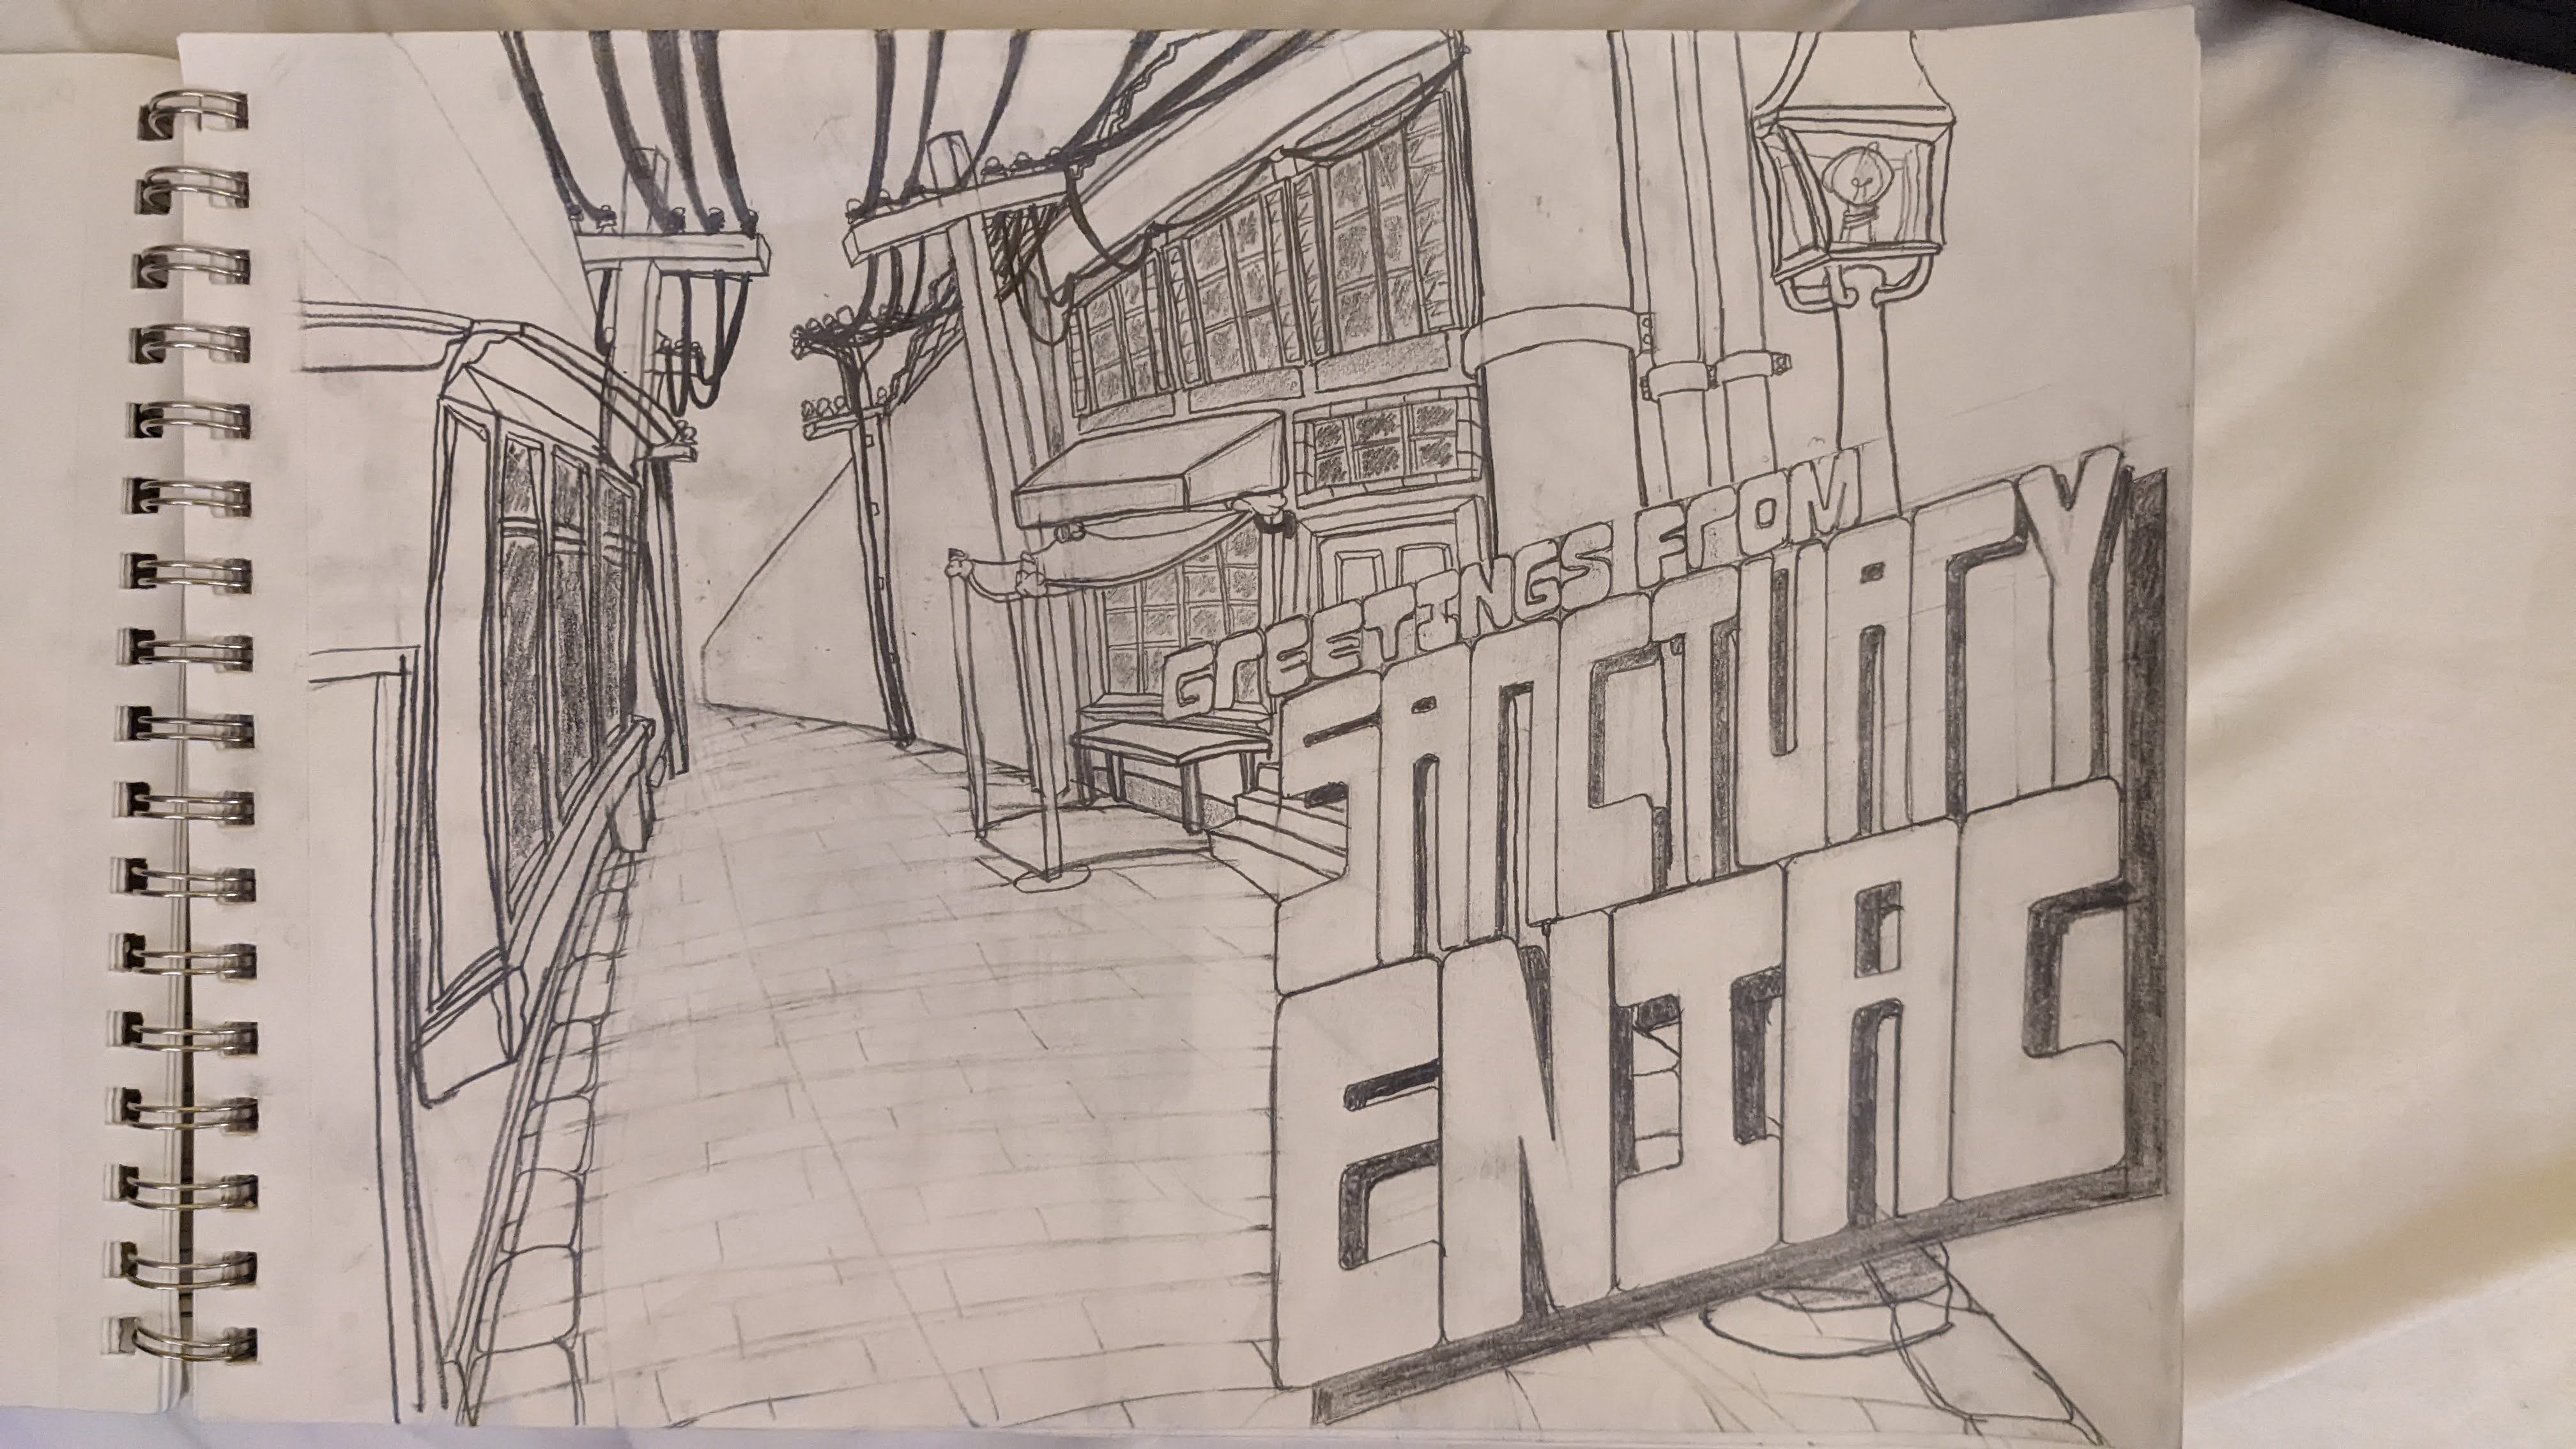 GREETINGS FROM
SANCTUARY
ENIAC